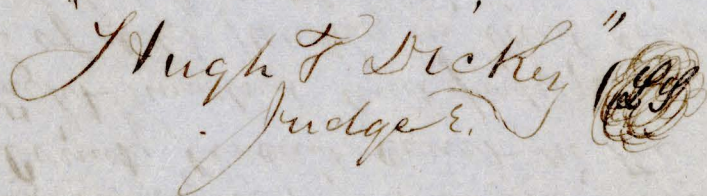 "Hugh T Dickey" (LS)
Judge &.